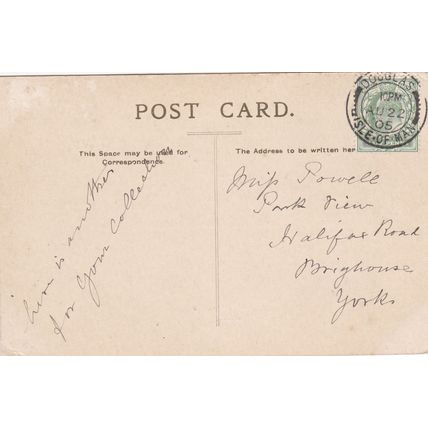 DOUGLAS
10PM
AU 22
05
ISLE-OF-MAN
POST CARD.
This Space may be used for
Correspondence.
The Address to be written her
here is another
for your collection
Miss Powell
Park View
Halifax Road
Brighouse
Yorks